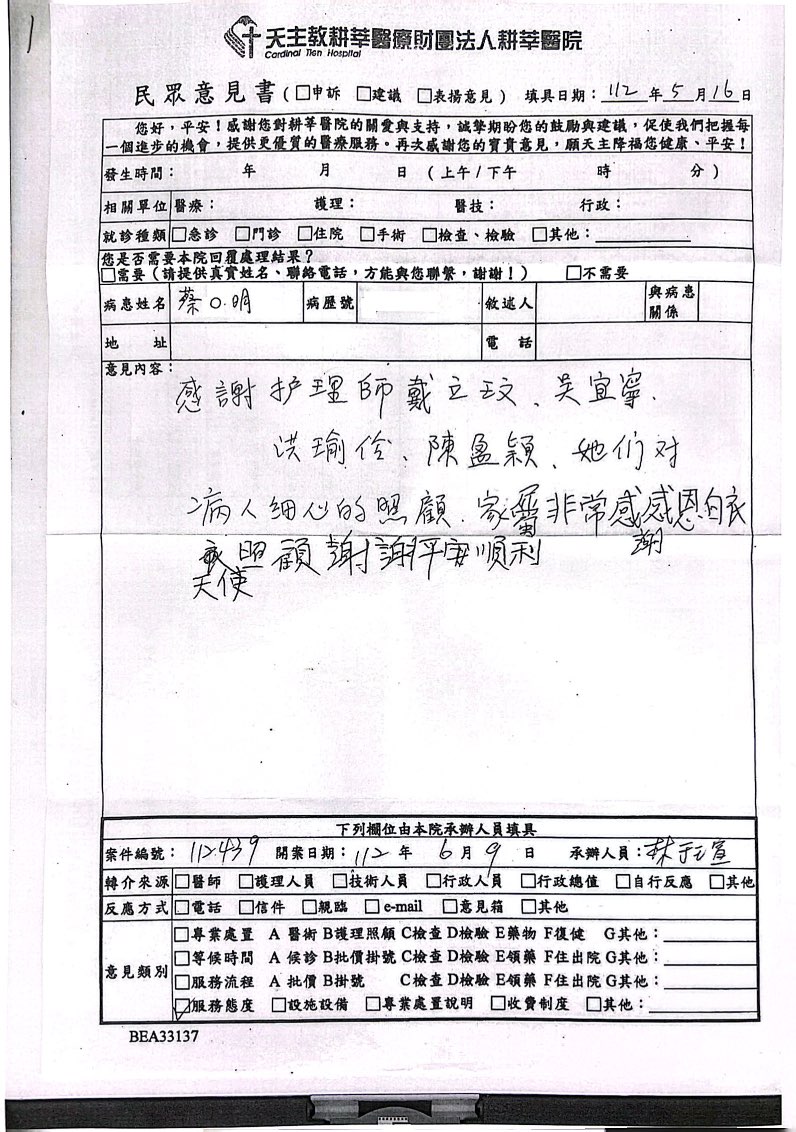 1
天主教耕莘醫療財團法人耕莘醫院
Cardinal Tien Hospital
民眾意見書(□申訴 □建議 □表揚意見) 填具日期:112年5月16日
您好,平安!感謝您對耕莘醫院的關愛與支持,誠摯期盼您的鼓勵與建議,促使我們把握每
一個進步的機會,提供更優質的醫療服務。再次感謝您的寶貴意見,願天主降福您健康、平安!
發生時間: 年 月 日 (上午/下午 時 分)
相關單位 醫療: 護理: 醫技: 行政:
就診種類 □急診 □門診 □住院 □手術 □檢查、檢驗 □其他:
您是否需要本院回覆處理結果?
□需要(請提供真實姓名、聯絡電話,方能與您聯繫,謝謝!) □不需要
病患姓名 蔡○明 病歷號 敘述人 與病患關係
地址 電話
意見內容:
感謝护理師戴立玟、吳宜寧、
洪瑜伶、陳盈穎、她们对
病人細心的照顧.家屬非常感謝感恩白衣
天使照顧謝謝平安順利
下列欄位由本院承辦人員填具
案件編號:112439 開案日期:112年6月9日 承辦人員:林于宣
轉介來源 □醫師 □護理人員 □技術人員 □行政人員 □行政總值 □自行反應 □其他
反應方式 □電話 □信件 □親臨 □e-mail □意見箱 □其他
意見類別
□專業處置 A 醫術 B護理照顧 C檢查 D檢驗 E藥物 F復健 G其他:
□等候時間 A 候診 B批價掛號 C檢查 D檢驗 E領藥 F住出院 G其他:
□服務流程 A 批價 B掛號 C檢查 D檢驗 E領藥 F住出院 G其他:
☑服務態度 □設施設備 □專業處置說明 □收費制度 □其他:
BEA33137